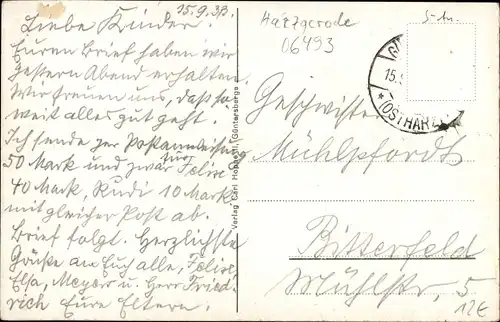 15.9.33.
Liebe Kinder!
Euren Brief haben wir
gestern Abend erhalten.
Wir freuen uns, daß so=
weit alles gut geht.
Ich sende per Postanweisung
50 Mark und zwar für Felix
40 Mark, Rudi 10 Mark
mit gleicher Post ab.
Brief folgt. Herzlichste
Grüße an Euch alle, Felix,
Elsa, Meyers u. Herr Fried=
rich Eure Eltern.
Verlag Carl Güntersberge
Harzgerode
06493
5-M.
15.
* (OSTHARZ)
Geschwister
Mühlpfordt
Bitterfeld
Mühlstr. 5
12€